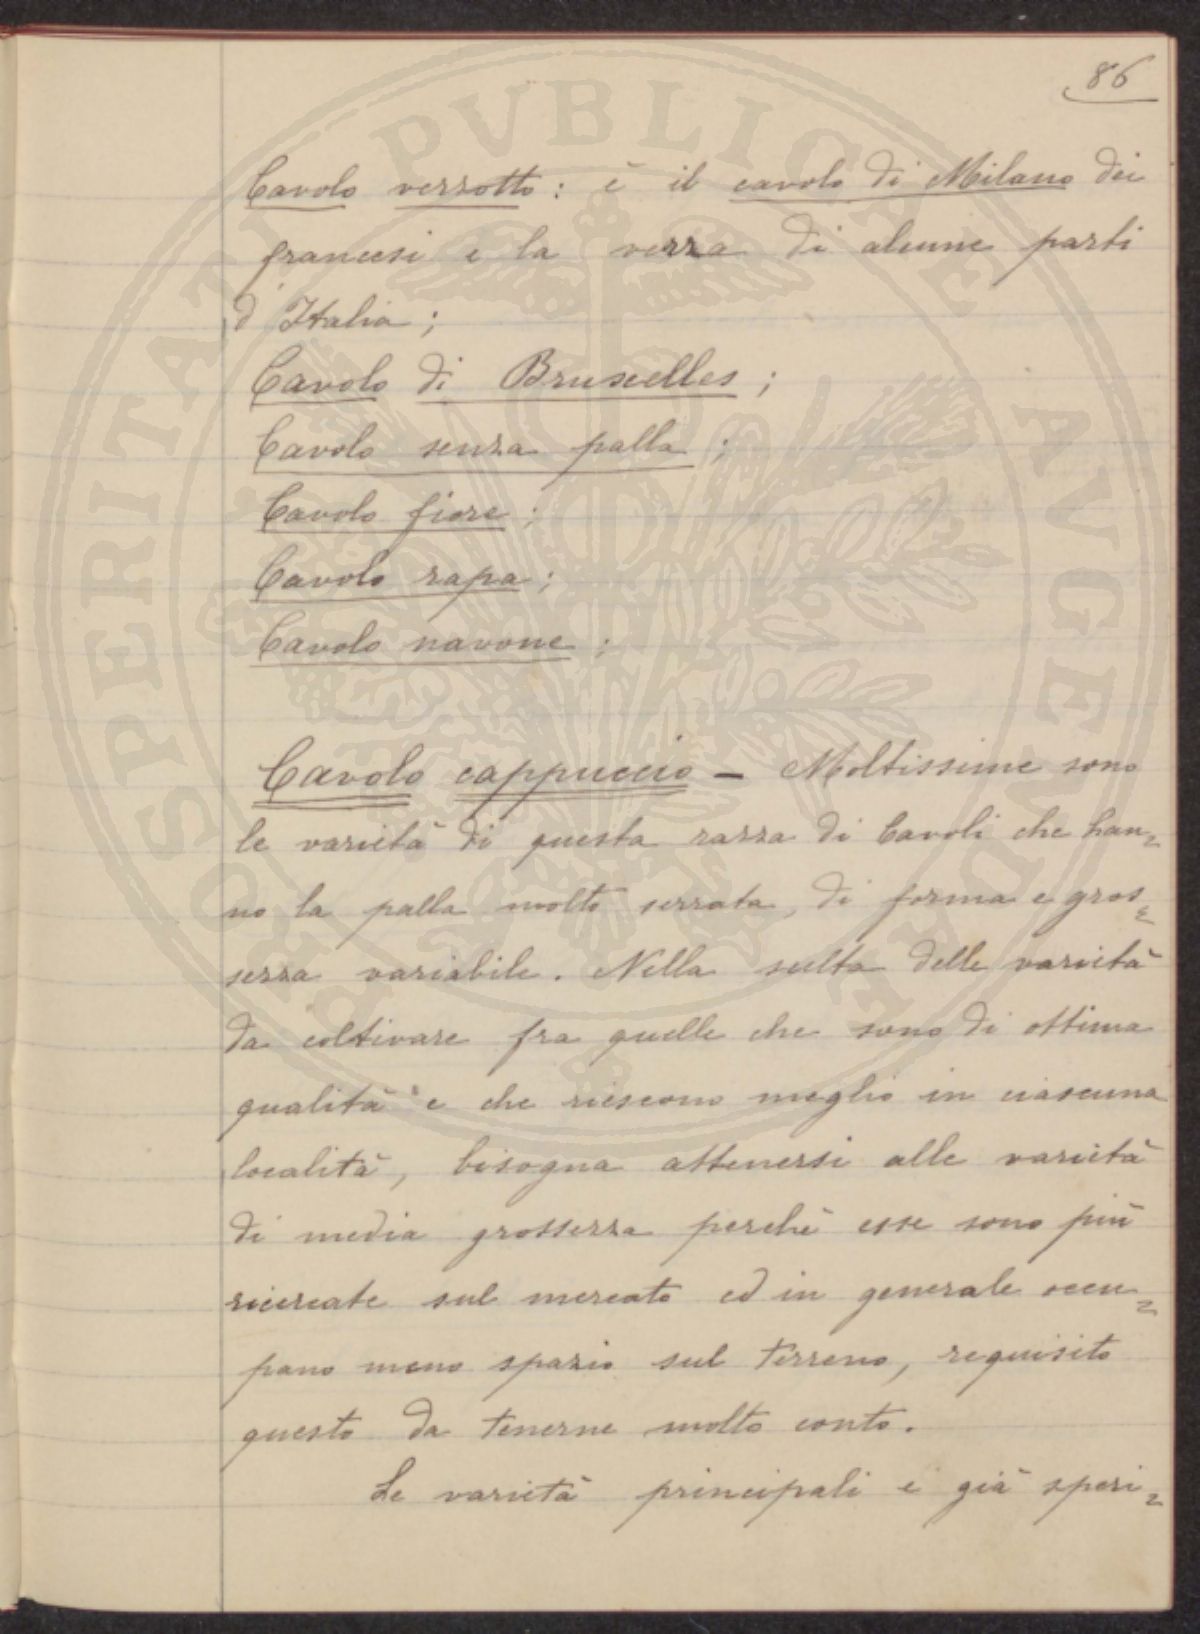 86
Cavolo verzotto: è il cavolo di Milano dei
francesi e la verza di alcune parti
d'Italia;
Cavolo di Bruxelles;
Cavolo senza palla;
Cavolo fiore;
Cavolo rapa;
Cavolo navone;
Cavolo cappuccio – Moltissime sono
le varietà di questa razza di Cavoli che han=
no la palla molto serrata, di forma e gros=
sezza variabile. Nella scelta delle varietà
da coltivare fra quelle che sono di ottima
qualità e che riescono meglio in ciascuna
località, bisogna attenersi alle varietà
di media grossezza perchè esse sono più
ricercate sul mercato ed in generale occu=
pano meno spazio sul terreno, requisito
questo da tenerne molto conto.
Le varietà principali e già speri=
PROSPERITATI PVBLICAE AVGENDAE